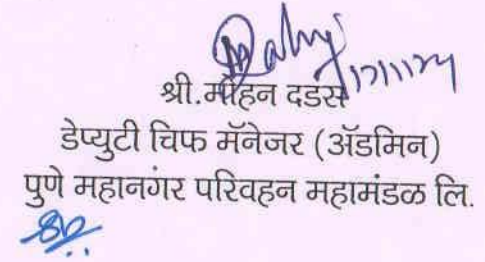 17/11/24
श्री.मोहन दडस
डेप्युटी चिफ मॅनेजर (ॲडमिन)
पुणे महानगर परिवहन महामंडळ लि.